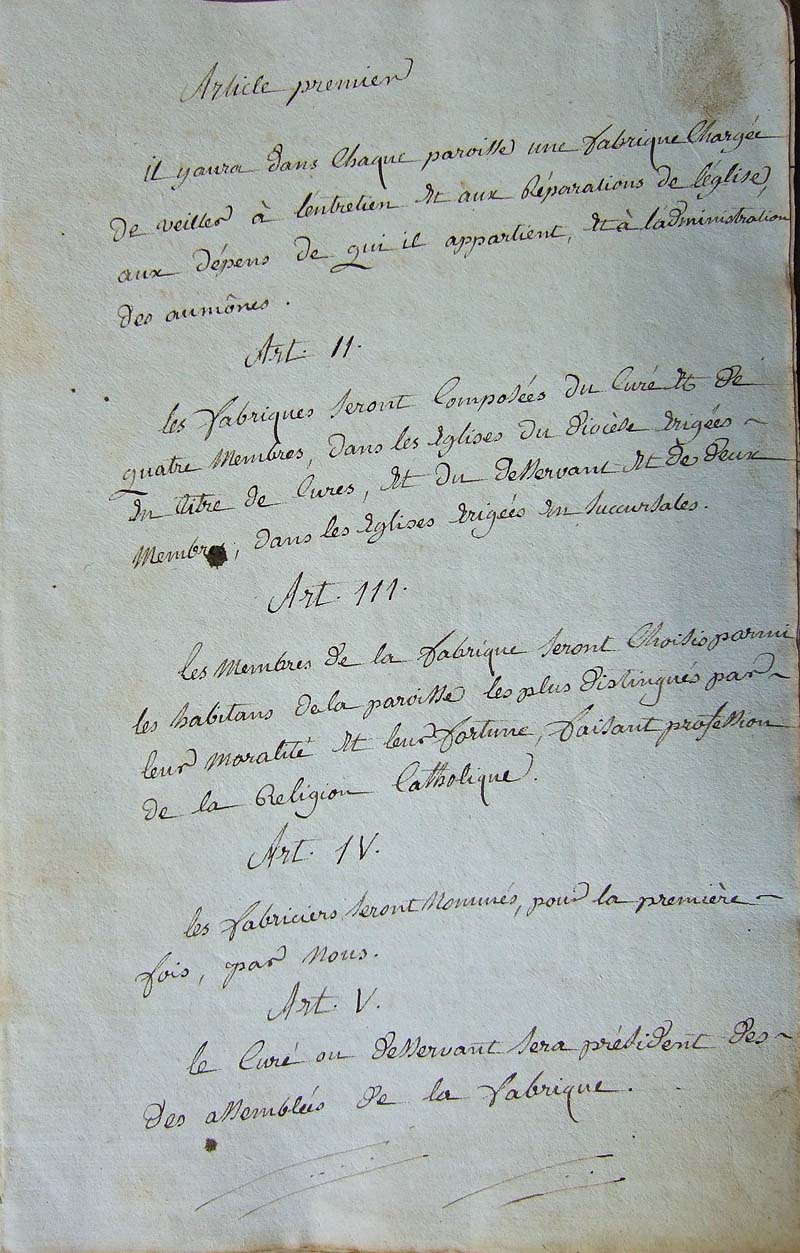 Article premier
il y aura dans Chaque paroisse une fabrique Chargée
de veiller à l'entretien et aux Réparations de l'église,
aux dépens de qui il appartient, et à l'administration
des aumônes.
Art. II.
les fabriques seront Composées du Curé et de
quatre Membres, dans les églises du diocèse érigées ~
en titre de Cures, et du desservant et de deux
Membres, dans les églises érigées en succursales.
Art. III.
les Membres de la fabrique seront Choisis parmi
les habitans de la paroisse les plus distingués par ~
leur moralité et leur fortune, faisant profession
de la Religion Catholique.
Art. IV.
les fabriciers seront Nommés, pour la première ~
fois, par Nous.
Art. V.
le Curé ou desservant sera président des ~
des assemblées de la fabrique.